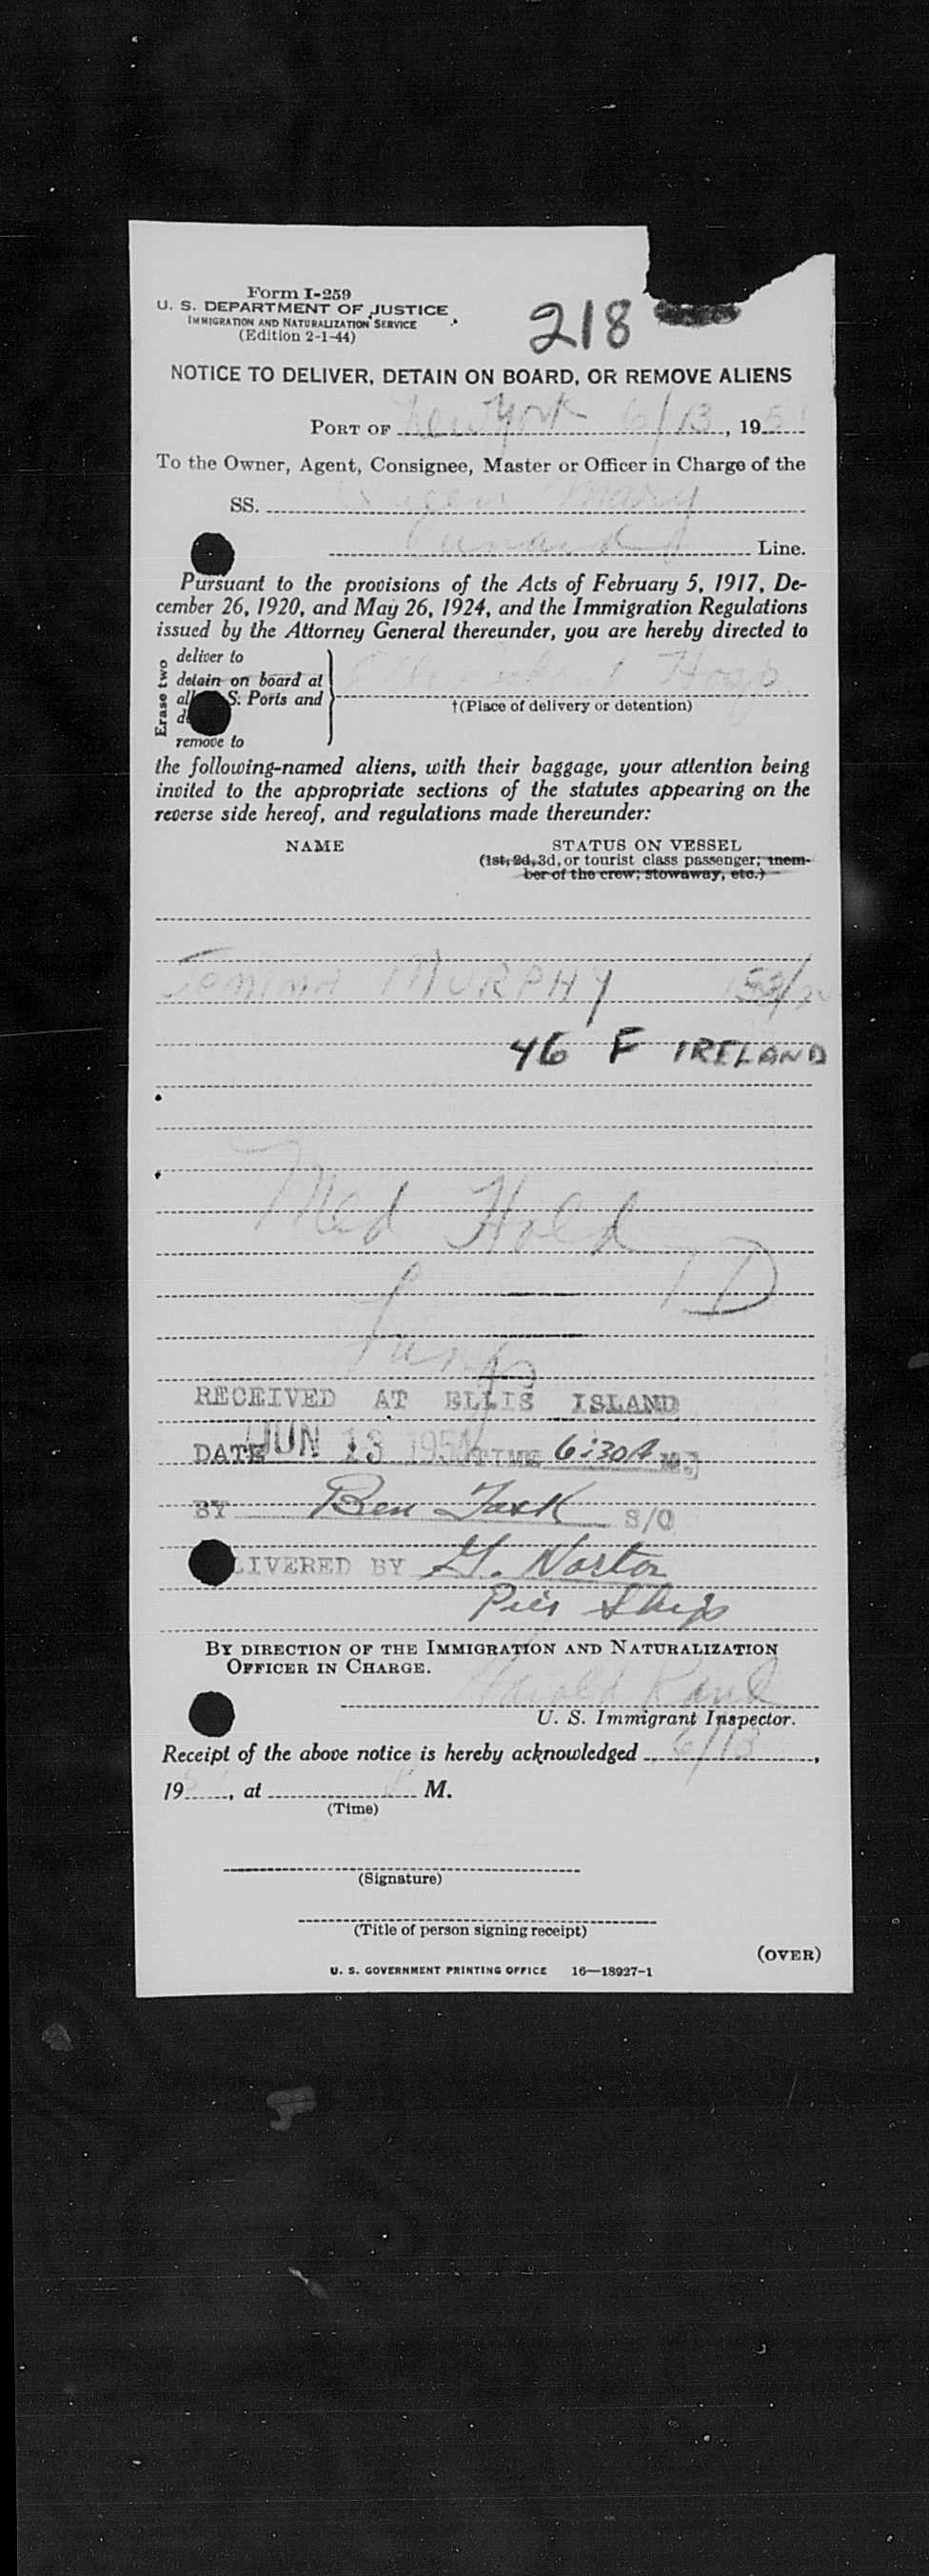 Form I-259
U. S. DEPARTMENT OF JUSTICE
IMMIGRATION AND NATURALIZATION SERVICE
(Edition 2-1-44)
218
NOTICE TO DELIVER, DETAIN ON BOARD, OR REMOVE ALIENS
PORT OF New York 6/13, 1951
To the Owner, Agent, Consignee, Master or Officer in Charge of the
SS. Queen Mary
Cunard Line.
Pursuant to the provisions of the Acts of February 5, 1917, De-
cember 26, 1920, and May 26, 1924, and the Immigration Regulations
issued by the Attorney General thereunder, you are hereby directed to
Erase two
deliver to
detain on board at
all S. Ports and
Ellis Island Hosp
†(Place of delivery or detention)
remove to
the following-named aliens, with their baggage, your attention being
invited to the appropriate sections of the statutes appearing on the
reverse side hereof, and regulations made thereunder:
NAME STATUS ON VESSEL
(1st, 2d, 3d, or tourist class passenger; mem-
ber of the crew; stowaway, etc.)
Jemima MURPHY 53/
46 F IRELAND
Med Hold
TD
RECEIVED AT ELLIS ISLAND
DATE JUN 13 1951 TIME 6:30 P M.
BY Ben Task S/O
LIVERED BY G. Norton
Pier Ship
BY DIRECTION OF THE IMMIGRATION AND NATURALIZATION
OFFICER IN CHARGE.
Harold Rand
U. S. Immigrant Inspector.
Receipt of the above notice is hereby acknowledged 6/13,
19, at M.
(Time)
(Signature)
(Title of person signing receipt)
(OVER)
U. S. GOVERNMENT PRINTING OFFICE 16—18927-1